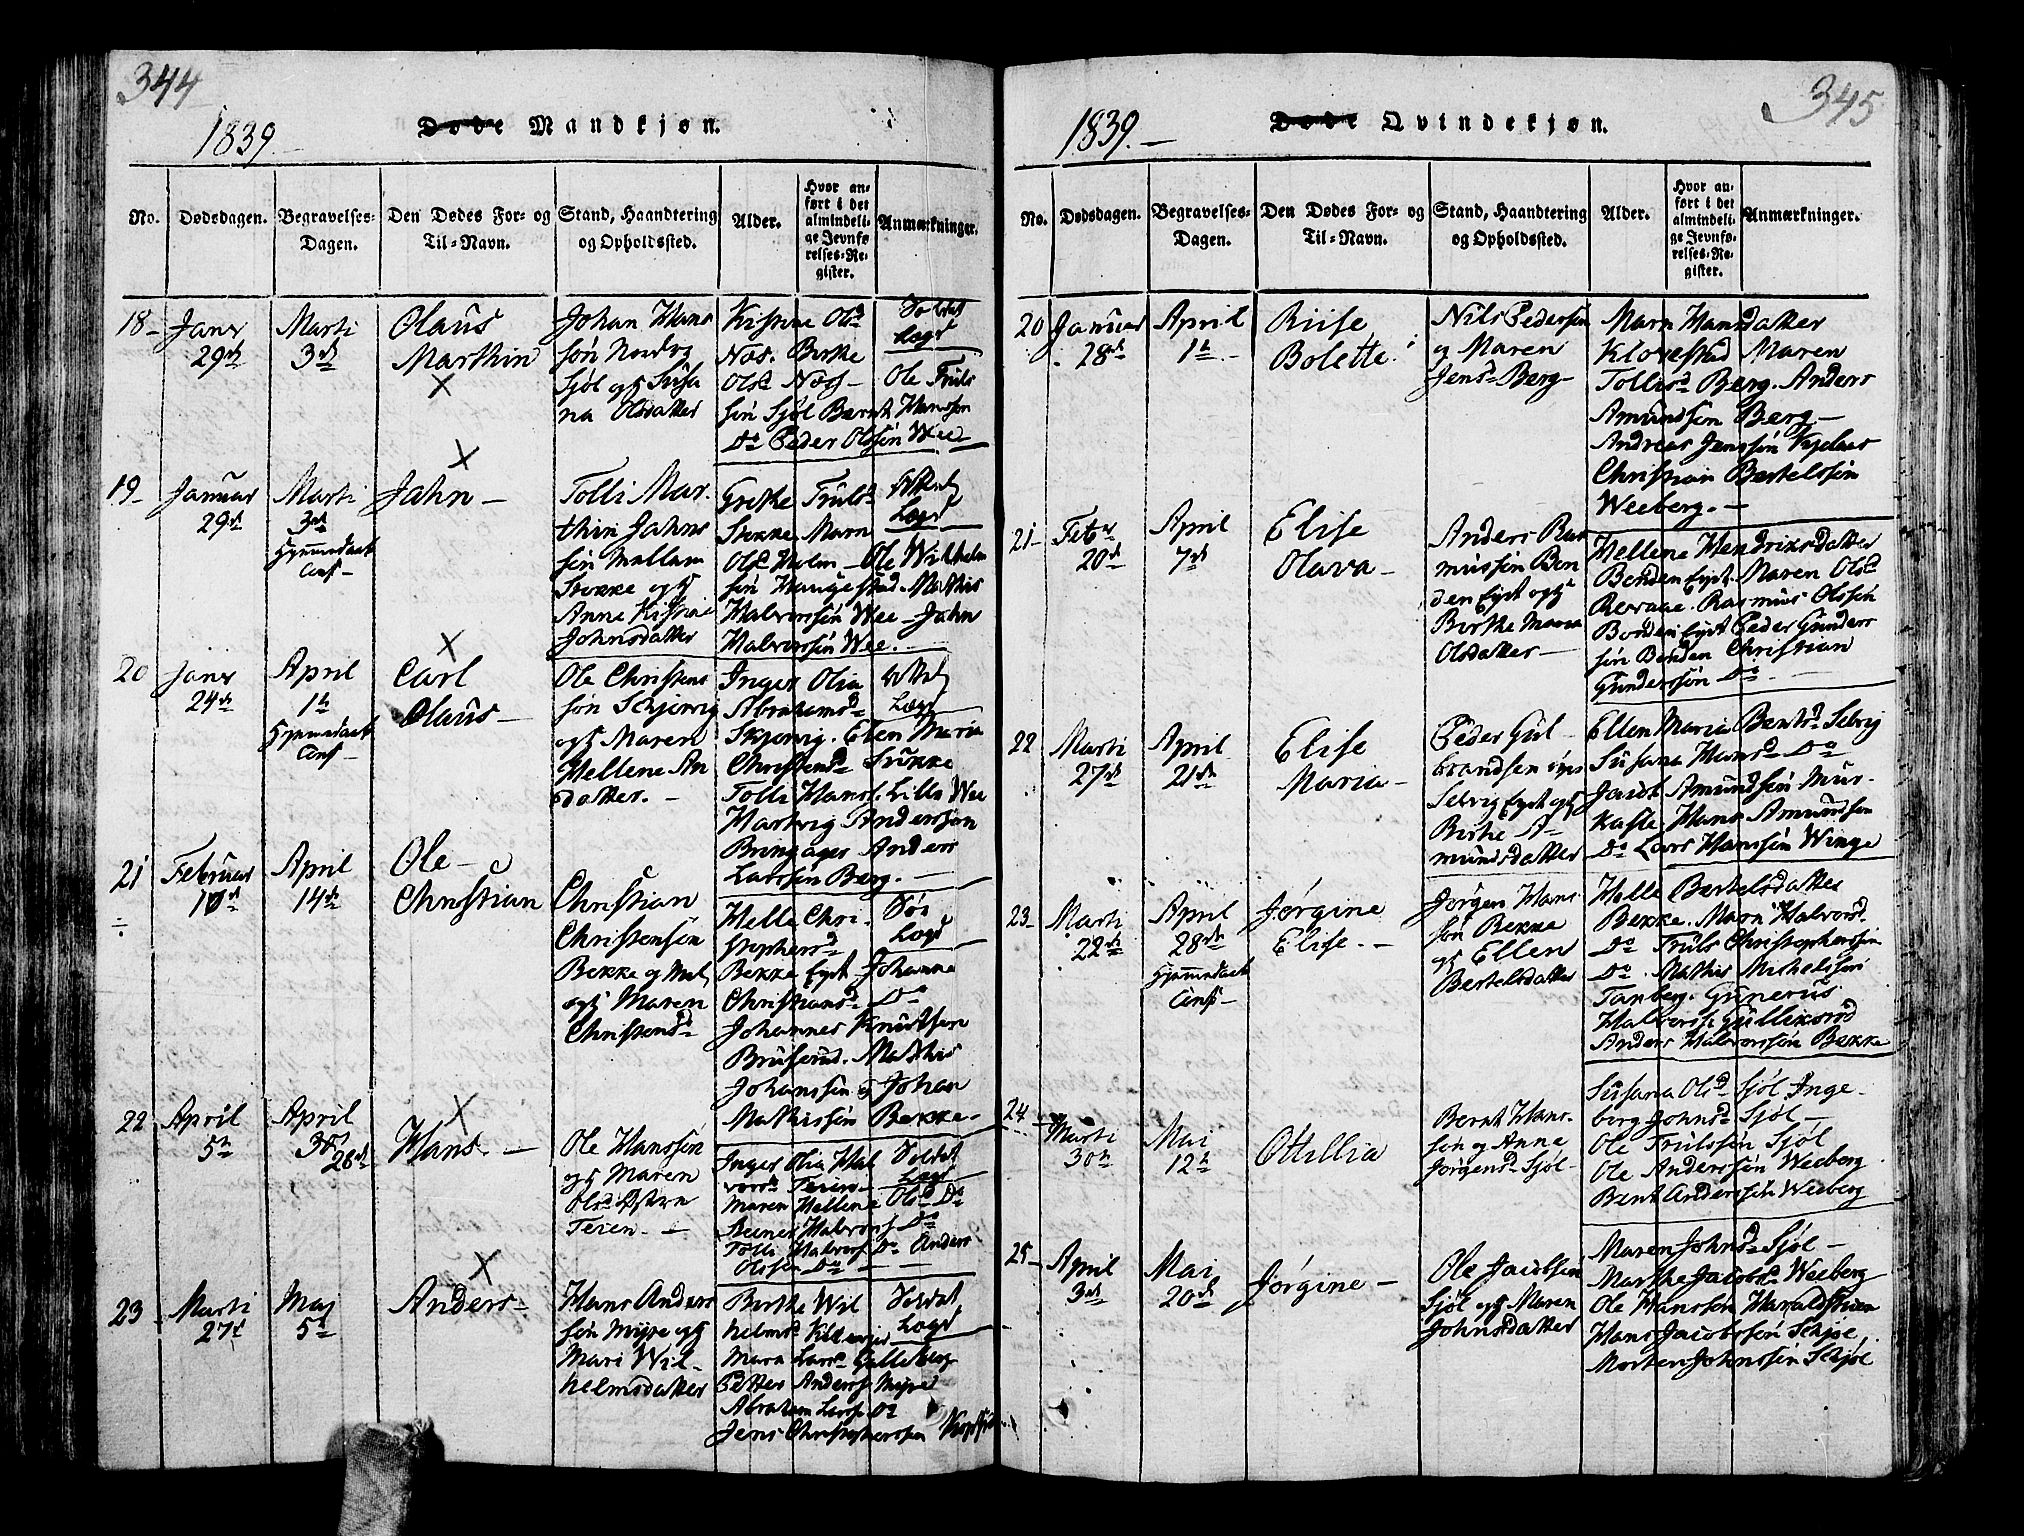 344
1839.
Døde Mandkjøn.
No.
Dødsdagen.
Begravelses-
Dagen.
Den Dødes For- og
Til-Navn.
Stand, Haandtering
og Opholdssted.
Alder.
Hvor an-
ført i det
almindeli-
ge Jevnfø-
relses-Re-
gister.
Anmærkninger.
18-
Janr
29de
Marti
3de
Olaus
Marthin
Johan Hans
søn
Sjøl og h Susa
na Olsdatter
Kistine Olsd
Næs. Birthe
Olsd Næs- Ole Truls
søn Sjøl Bernt Hanssøn
Do Peder Olssøn Wee-
19-
Januar
29de
Marti
3de
Hjemmedøbt
Jahn-
Tolli Mar-
thin Jahns
søn Mellam
Stokke og h
Anne Kistine
Johnsdatter
Grethe Truls
Stokke Marn
Olsd Holm- Ole Wilhelm
søn Haugestad. Mathis
Halvorssøn Wee- Jahn
Halvorssøn Wee.
20
Janr
24de
April
1te
Hjemmedøbt
Carl
Olaus-
Ole Christens
søn Schjervig
og h Maren
Hellene An
datter.-
Inger Olia
Abrahamsd
Skjervig. Elen Maria
Christensd Trukke
Tolli Hanss. Lille Wee
Hartvig Anderssøn
Bringager Anders
Larssøn Berg.-
21
Februar
10de
April
14de
Ole-
Christian
Christian
Christenssøn
Bekke og
og h Maren
Christensd
Helle Chri-
stophersd
Bekke Eyet Johanne
Christiansd Do
Johannes Knutsen
Bruserud. Mathis
Johanssøn og Johan
Mathissøn Bekke-
22
April
5te
April
28de
Hans-
Ole Hanssøn
og h Maren
Olsd
Teien-
Inger Olia Hal
vorsd Teien-
Maren Hellene Olsd Do
Reiner Halvors Do
Tolli Halvors Do Anders
Olssen Do-
23
Marti
27d
Maj
5te
Anders-
Hans Anders
søn Myre og h
Mari Wil-
helmsdatter
Birthe Wil
helmsd
Mara Larsd Gulleberg
Petter Anderss Myre
Abraham Larss Do
Jens Christopherssen
345
1839.-
Døde Qvindekjøn.
No.
Dødsdagen.
Begravelses-
Dagen.
Den Dødes For- og
Til-Navn.
Stand, Haandtering
og Opholdssted.
Alder.
Hvor an-
ført i det
almindeli-
ge Jevnfø-
relses-Re-
gister.
Anmærkninger.
20
Januar
28de
April
1te
Riise
Bolette.
Nils Pedersen
og Maren
Jensd Berg-
Marn Hansdatter
Klovestad Maren
Tollisd Berg. Anders
Amundssøn Berg-
Andreas Jenssøn
Christian Bertelssøn
Weeberg.-
21-
Febr
20de
April
7de
Elise
Olava-
Anders Ras
mussøn Ben
den Eyet og h
Birthe Maria
Olsdatter-
Hellene Hendriksdatter
Benden Eyet. Maren Olsd
Revaae. Rasmus Olssøn
Benden Eyet Peder Gunders
søn Benden Christian
Gunderssøn Do-
22
Marti
27de
April
21de
Elise
Maria-
Peder Gul-
brandsen
Selvig Eyet og h
Birthe A-
mundsdatter
Ellen Maria Bentsd Selvig
Susana Hansd Do
Jacob Amundssøn Mur-
kasle Hans Amundssøn
Do Lars Hanssøn Winge
23-
Marti
22de
April
28de
Hjemmedøbt
Jørgine
Elise.-
Jørgen Hans
søn Bekke
og h Ellen
Bertelsdatter
Helle Bertelsdatter
Bekke. Marn Halvorsd
Do Truls Christopherssøn
Do. Mathis Michelssøn
Tanberg. Gunerus
Halvorss. Gulliksrød
Anders Halvorssøn Bekke
24
Marti
30te
Mai
12te
Ottillia
Bernt Hans-
søn og Anne
Jørgensd Sjøl-
Susana Olsd Sjøl Inge-
berg Johnsd Sjøl-
Ole Trulssøn Sjøl
Ole Anderssøn Weeberg
Bent Anderssøn Weeberg
25-
April
3de
Mai
20de
Jørgine-
Ole Jacobsen
Sjøl og h Maren
Johnsdatter
Maren Johnsd Sjøl-
Marthe Jacobsd Weeberg
Ole Hanssøn Haraldstuen
Hans Jacobssøn Schjøl
Morten Johnssøn Schjøl